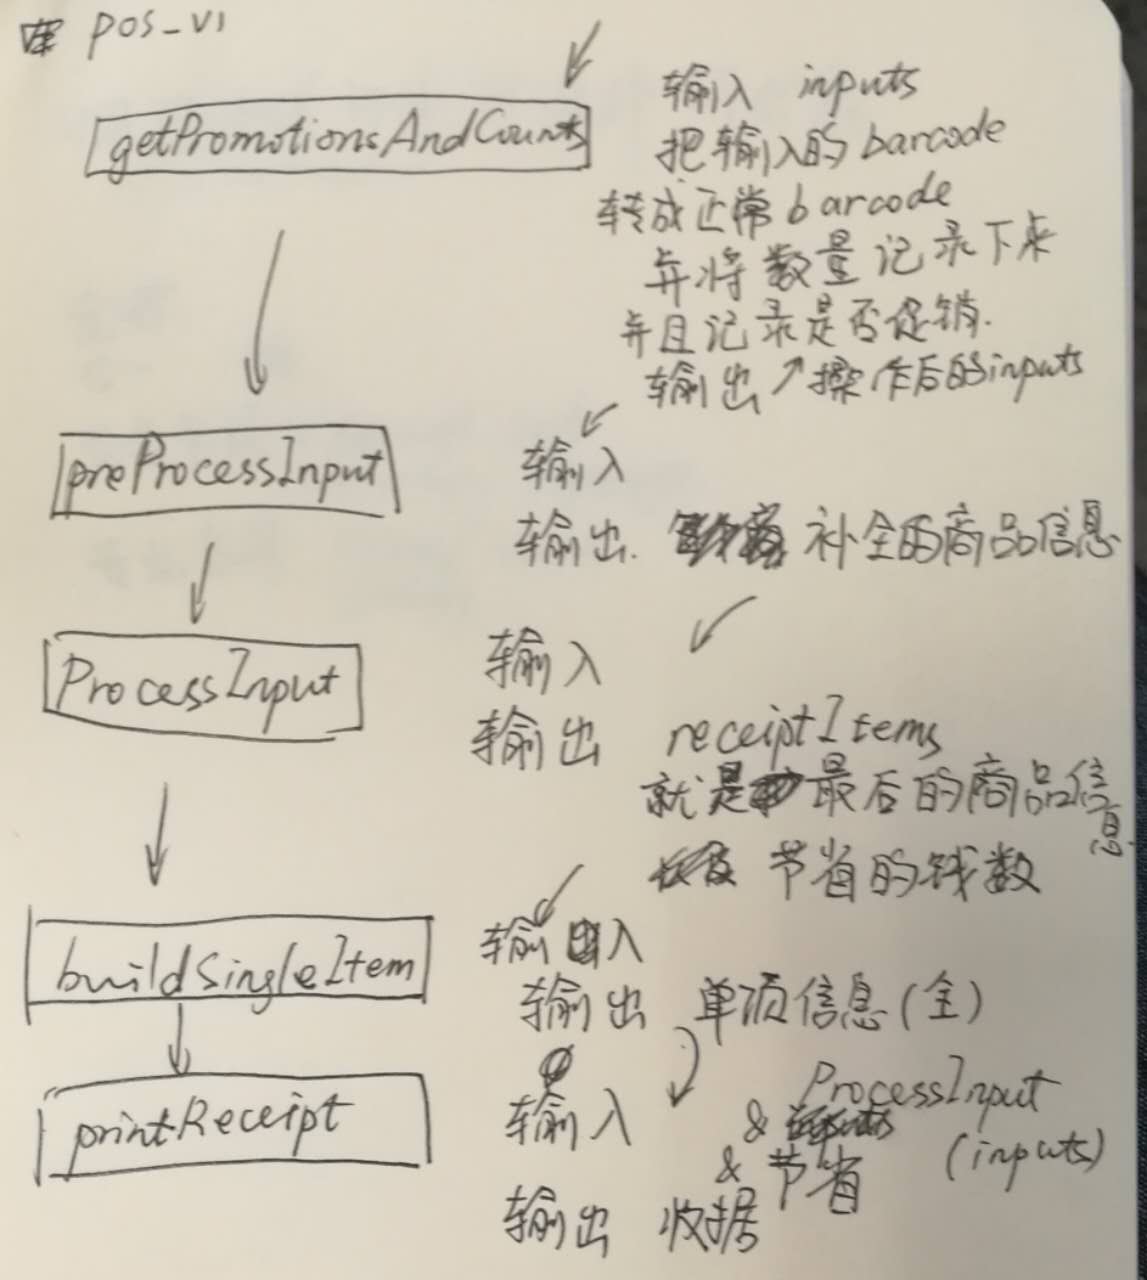 pos_v1
getPromotionsAndCounts
输入 inputs
把输入的barcode
转成正常barcode
并将数量记录下来
并且记录是否促销.
输出↗操作后的inputs
preProcessInput
输入
输出. 补全的商品信息
ProcessInput
输入
输出 receiptItems
就是最后的商品信息
节省的钱数
buildSingleItem
输入
输出 单项信息(全)
printReceipt
输入 & ProcessInput
(inputs)
& 节省
输出 收据